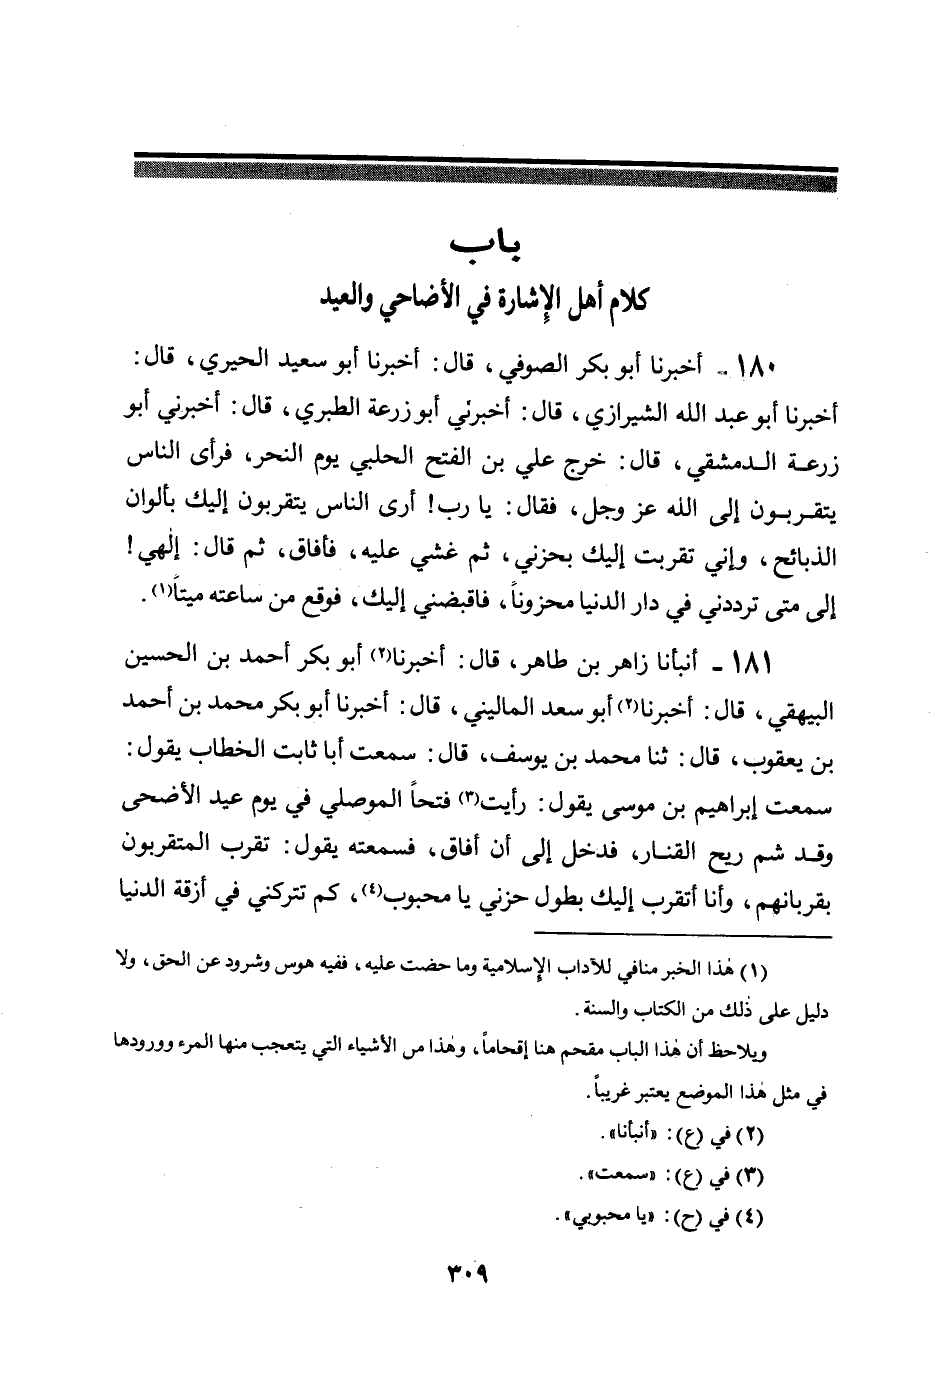 باب
كلام أهل الإشارة في الأضاحي والعيد
١٨٠ - أخبرنا أبو بكر الصوفي، قال: أخبرنا أبو سعيد الحيري، قال:
أخبرنا أبو عبد الله الشيرازي، قال: أخبرني أبو زرعة الطبري، قال: أخبرني أبو
زرعـة الـدمشقي، قال: خرج علي بن الفتح الحلبي يوم النحر، فرأى الناس
يتقـربـون إلى الله عز وجل، فقال: يا رب! أرى الناس يتقربون إليك بألوان
الذبائح، وإني تقربت إليك بحزني، ثم غشي عليه، فأفاق، ثم قال: إلٰهي!
إلى متى ترددني في دار الدنيا محزوناً، فاقبضني إليك، فوقع من ساعته ميتاً(١).
١٨١ - أنبأنا زاهر بن طاهر، قال: أخبرنا(٢) أبو بكر أحمد بن الحسين
البيهقي، قال: أخبرنا(٢) أبو سعد الماليني، قال: أخبرنا أبو بكر محمد بن أحمد
بن يعقوب، قال: ثنا محمد بن يوسف، قال: سمعت أبا ثابت الخطاب يقول:
سمعت إبراهيم بن موسى يقول: رأيت(٣) فتحاً الموصلي في يوم عيد الأضحى
وقـد شم ريح القتـار، فدخل إلى أن أفاق، فسمعته يقول: تقرب المتقربون
بقربانهم، وأنا أتقرب إليك بطول حزني يا محبوب(٤)، كم تتركني في أزقة الدنيا
(١) هٰذا الخبر منافي للآداب الإسلامية وما حضت عليه، ففيه هوس وشرود عن الحق، ولا
دليل على ذٰلك من الكتاب والسنة.
ويلاحظ أن هٰذا الباب مقحم هنا إقحاماً، وهٰذا من الأشياء التي يتعجب منها المرء وورودها
في مثل هٰذا الموضع يعتبر غريباً.
(٢) في (ع): «أنبأنا».
(٣) في (ع): «سمعت».
(٤) في (ح): «يا محبوبي».
٣٠٩